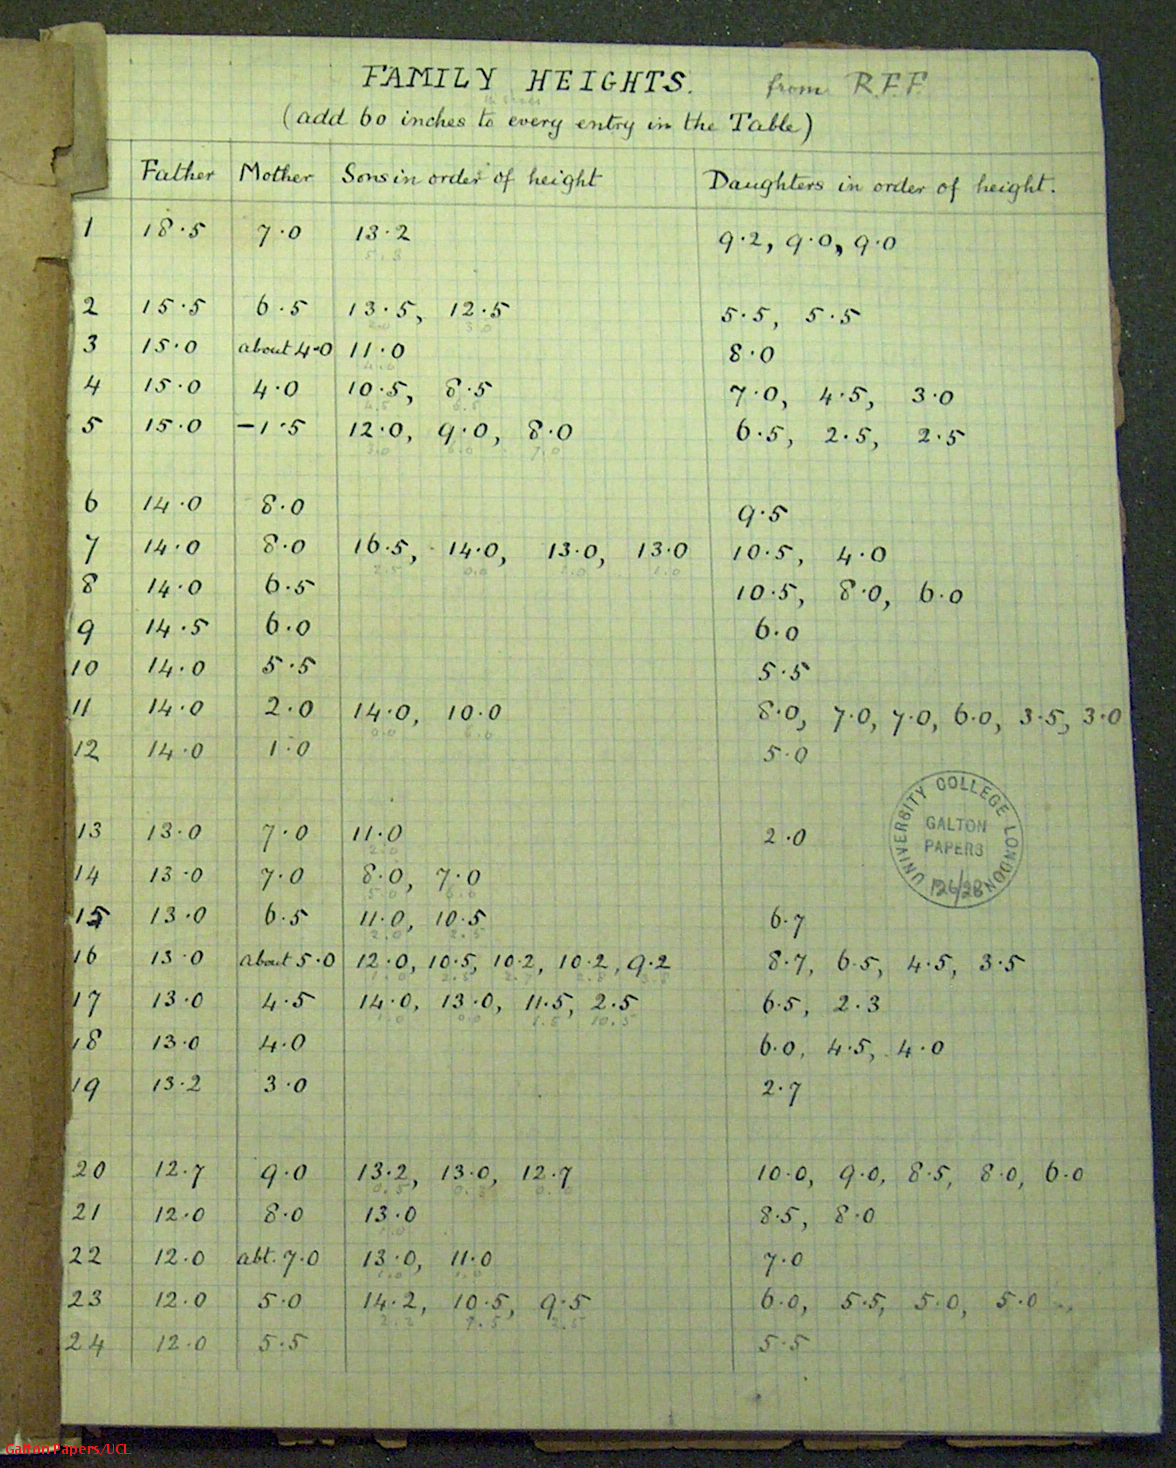 FAMILY HEIGHTS. from R.F.F.
(add 60 inches to every entry in the Table)
Father Mother Sons in order of height Daughters in order of height.
1 18·5 7·0 13·2 9·2, 9·0, 9·0
2 15·5 6·5 13·5, 12·5 5·5, 5·5
3 15·0 about 4·0 11·0 8·0
4 15·0 4·0 10·5, 8·5 7·0, 4·5, 3·0
5 15·0 -1·5 12·0, 9·0, 8·0 6·5, 2·5, 2·5
6 14·0 8·0 9·5
7 14·0 8·0 16·5, 14·0, 13·0, 13·0 10·5, 4·0
8 14·0 6·5 10·5, 8·0, 6·0
9 14·5 6·0 6·0
10 14·0 5·5 5·5
11 14·0 2·0 14·0, 10·0 8·0, 7·0, 7·0, 6·0, 3·5, 3·0
12 14·0 1·0 5·0
13 13·0 7·0 11·0 2·0
14 13·0 7·0 8·0, 7·0
15 13·0 6·5 11·0, 10·5 6·7
16 13·0 about 5·0 12·0, 10·5, 10·2, 10·2, 9·2 8·7, 6·5, 4·5, 3·5
17 13·0 4·5 14·0, 13·0, 11·5, 2·5 6·5, 2·3
18 13·0 4·0 6·0, 4·5, 4·0
19 13·2 3·0 2·7
20 12·7 9·0 13·2, 13·0, 12·7 10·0, 9·0, 8·5, 8·0, 6·0
21 12·0 8·0 13·0 8·5, 8·0
22 12·0 abt. 7·0 13·0, 11·0 7·0
23 12·0 5·0 14·2, 10·5, 9·5 6·0, 5·5, 5·0, 5·0
24 12·0 5·5 5·5
UNIVERSITY COLLEGE LONDON
GALTON
PAPERS
Galton Papers/UCL